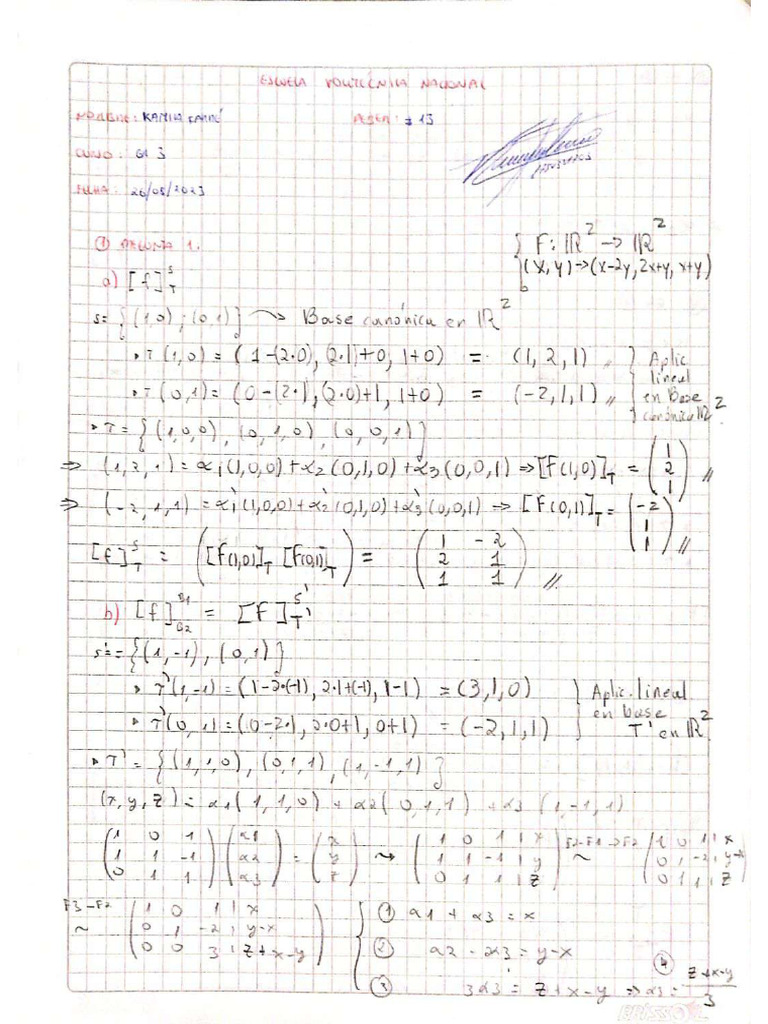 ESCUELA POLITÉCNICA NACIONAL
NOMBRE: KAMILA
CURSO: GR 3
FECHA: 26/05/2023
① PREGUNTA 1.
{ F: ℝ² → ℝ²
(x, y) → (x-2y, 2x+y, x+y)
a) [f]ˢ_T
S = {(1,0), (0,1)} → Base canónica en ℝ²
▸ T(1,0) = (1-(2·0), (2·1)+0, 1+0) = (1,2,1) //
▸ T(0,1) = (0-(2·1), (2·0)+1, 1+0) = (-2,1,1) //
} Aplic lineal en Base canónica ℝ²
▸ T = {(1,0,0), (0,1,0), (0,0,1)}
⇒ (1,2,1) = α1(1,0,0) + α2(0,1,0) + α3(0,0,1) ⇒ [F(1,0)]_T = (1 2 1) //
⇒ (-2,1,1) = α1'(1,0,0) + α2'(0,1,0) + α3'(0,0,1) ⇒ [F(0,1)]_T = (-2 1 1) //
[f]ˢ_T = ([F(1,0)]_T [F(0,1)]_T) = (1 -2
2 1
1 1) //
b) [f]^B1_B2 = [F]^S'_T'
S' = {(1,-1), (0,1)}
▸ T'(1,-1) = (1-2·(-1), 2·1+(-1), 1-1) = (3,1,0)
▸ T'(0,1) = (0-2·1, 2·0+1, 0+1) = (-2,1,1)
} Aplic. lineal en base T' en ℝ²
▸ T' = {(1,1,0), (0,1,1), (1,-1,1)}
(x,y,z) = α1(1,1,0) + α2(0,1,1) + α3(1,-1,1)
(1 0 1) (α1) = (x) ⇝ (1 0 1 | x) F2-F1→F2 (1 0 1 | x
(1 1 -1) (α2) (y) (1 1 -1 | y) ~ (0 1 -2 | y-x
(0 1 1) (α3) (z) (0 1 1 | z) (0 1 1 | z
F3-F2 (1 0 1 | x) { ① α1 + α3 = x
~ (0 1 -2 | y-x) ② α2 - 2α3 = y-x
(0 0 3 | z+x-y) ③ 3α3 = z+x-y ⇒ α3 = z+x-y / 3 ④